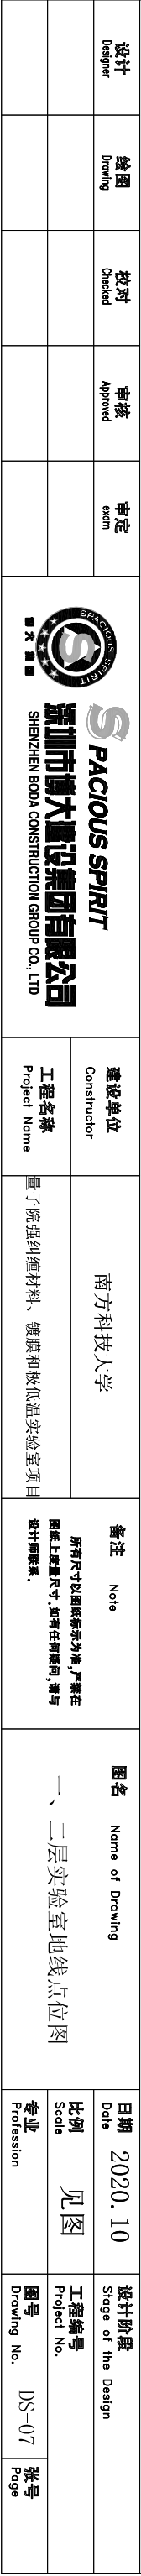 设计
Designer
绘图
Drawing
校对
Checked
审核
Approved
审定
exam
SPACIOUS SPIRIT
S
博大集团
SPACIOUS SPIRIT
深圳市博大建设集团有限公司
SHENZHEN BODA CONSTRUCTION GROUP CO., LTD
建设单位
Constructor
南方科技大学
工程名称
Project Name
量子院强纠缠材料、镀膜和极低温实验室项目
备注 Note
所有尺寸以图纸标示为准,严禁在
图纸上度量尺寸.如有任何疑问,请与
设计师联系.
图名 Name of Drawing
一、二层实验室地线点位图
日期
Date
2020.10
设计阶段
Stage of the Design
比例
Scale
见图
工程编号
Project No.
专业
Profession
图号
Drawing No.
DS-07
张号
Page